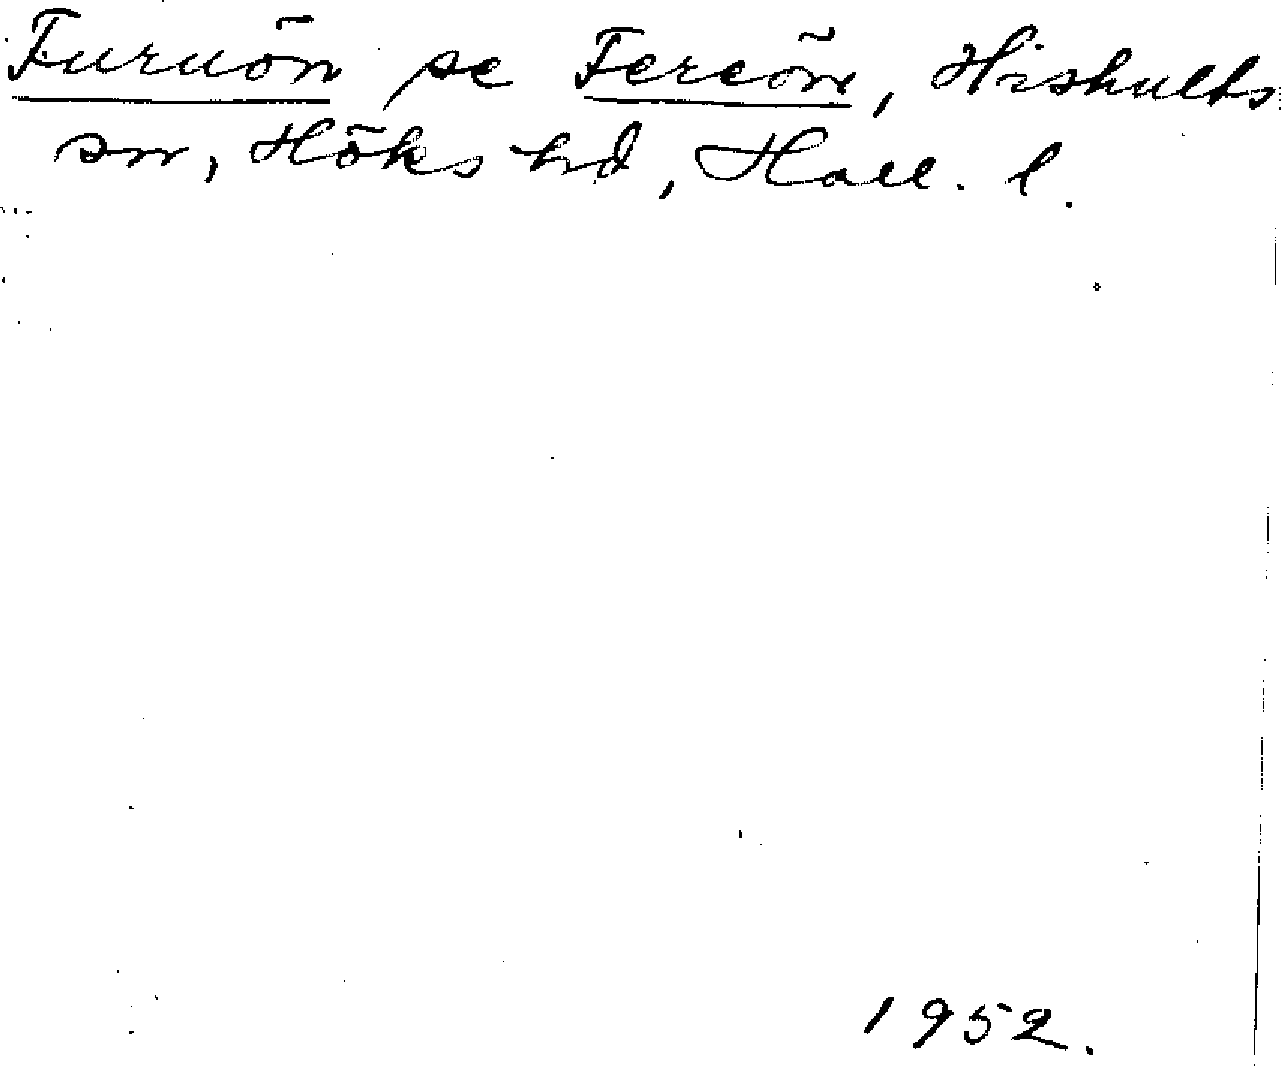 Furuön se Fereön, Hishults
sn, Höks hd, Hall. l.
1952.